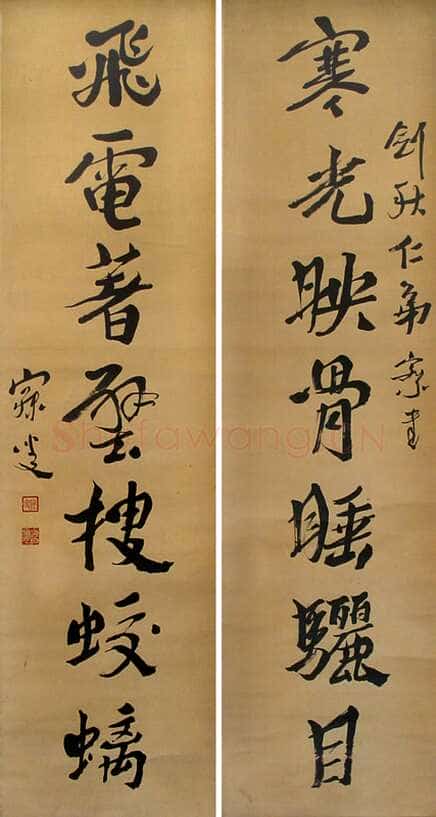 寒光映骨睡驪目
劍秋仁弟察書
飛電著壁搜蛟螭
寐叟
Shufawang.CN